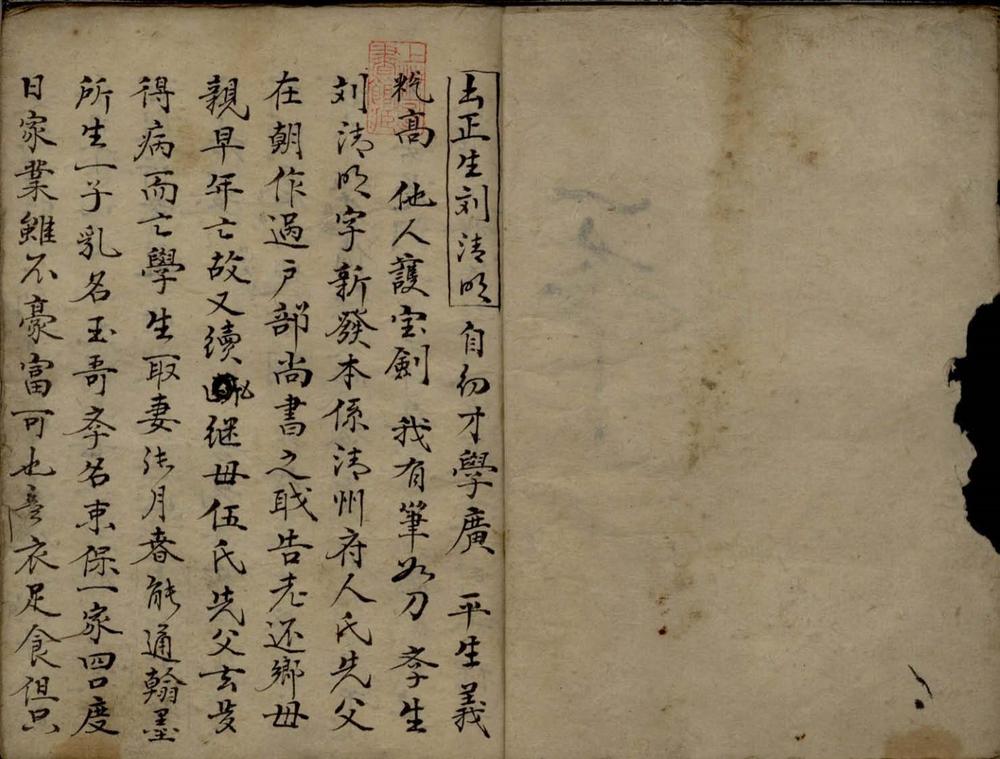 出正生刘清明 自幼才學廣 平生義
氣高 他人護宝劍 我有筆如刀 学生
刘清明字新發本係清州府人氏先父
在朝作過户部尚書之职告老还鄉母
親早年亡故又續 继母伍氏先父去
得病而亡學生取妻张月春能通翰墨
所生一子乳名玉哥学名東保一家四口度
日家業雖不豪富可也 衣足食但只